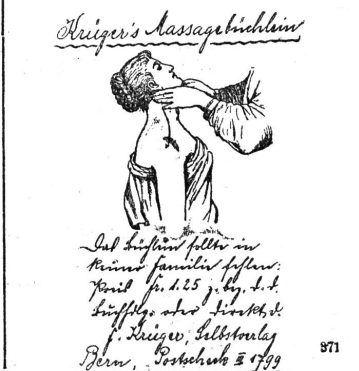 Krüger's Massagebüchlein
Das Büchlein sollte in
keiner Familie fehlen:
Preis Fr. 1.25 z. bez. d. d.
Buchhdlg. oder direkt d.
F. Krüger, Selbstverlag
Bern, Postscheck III 1799
371